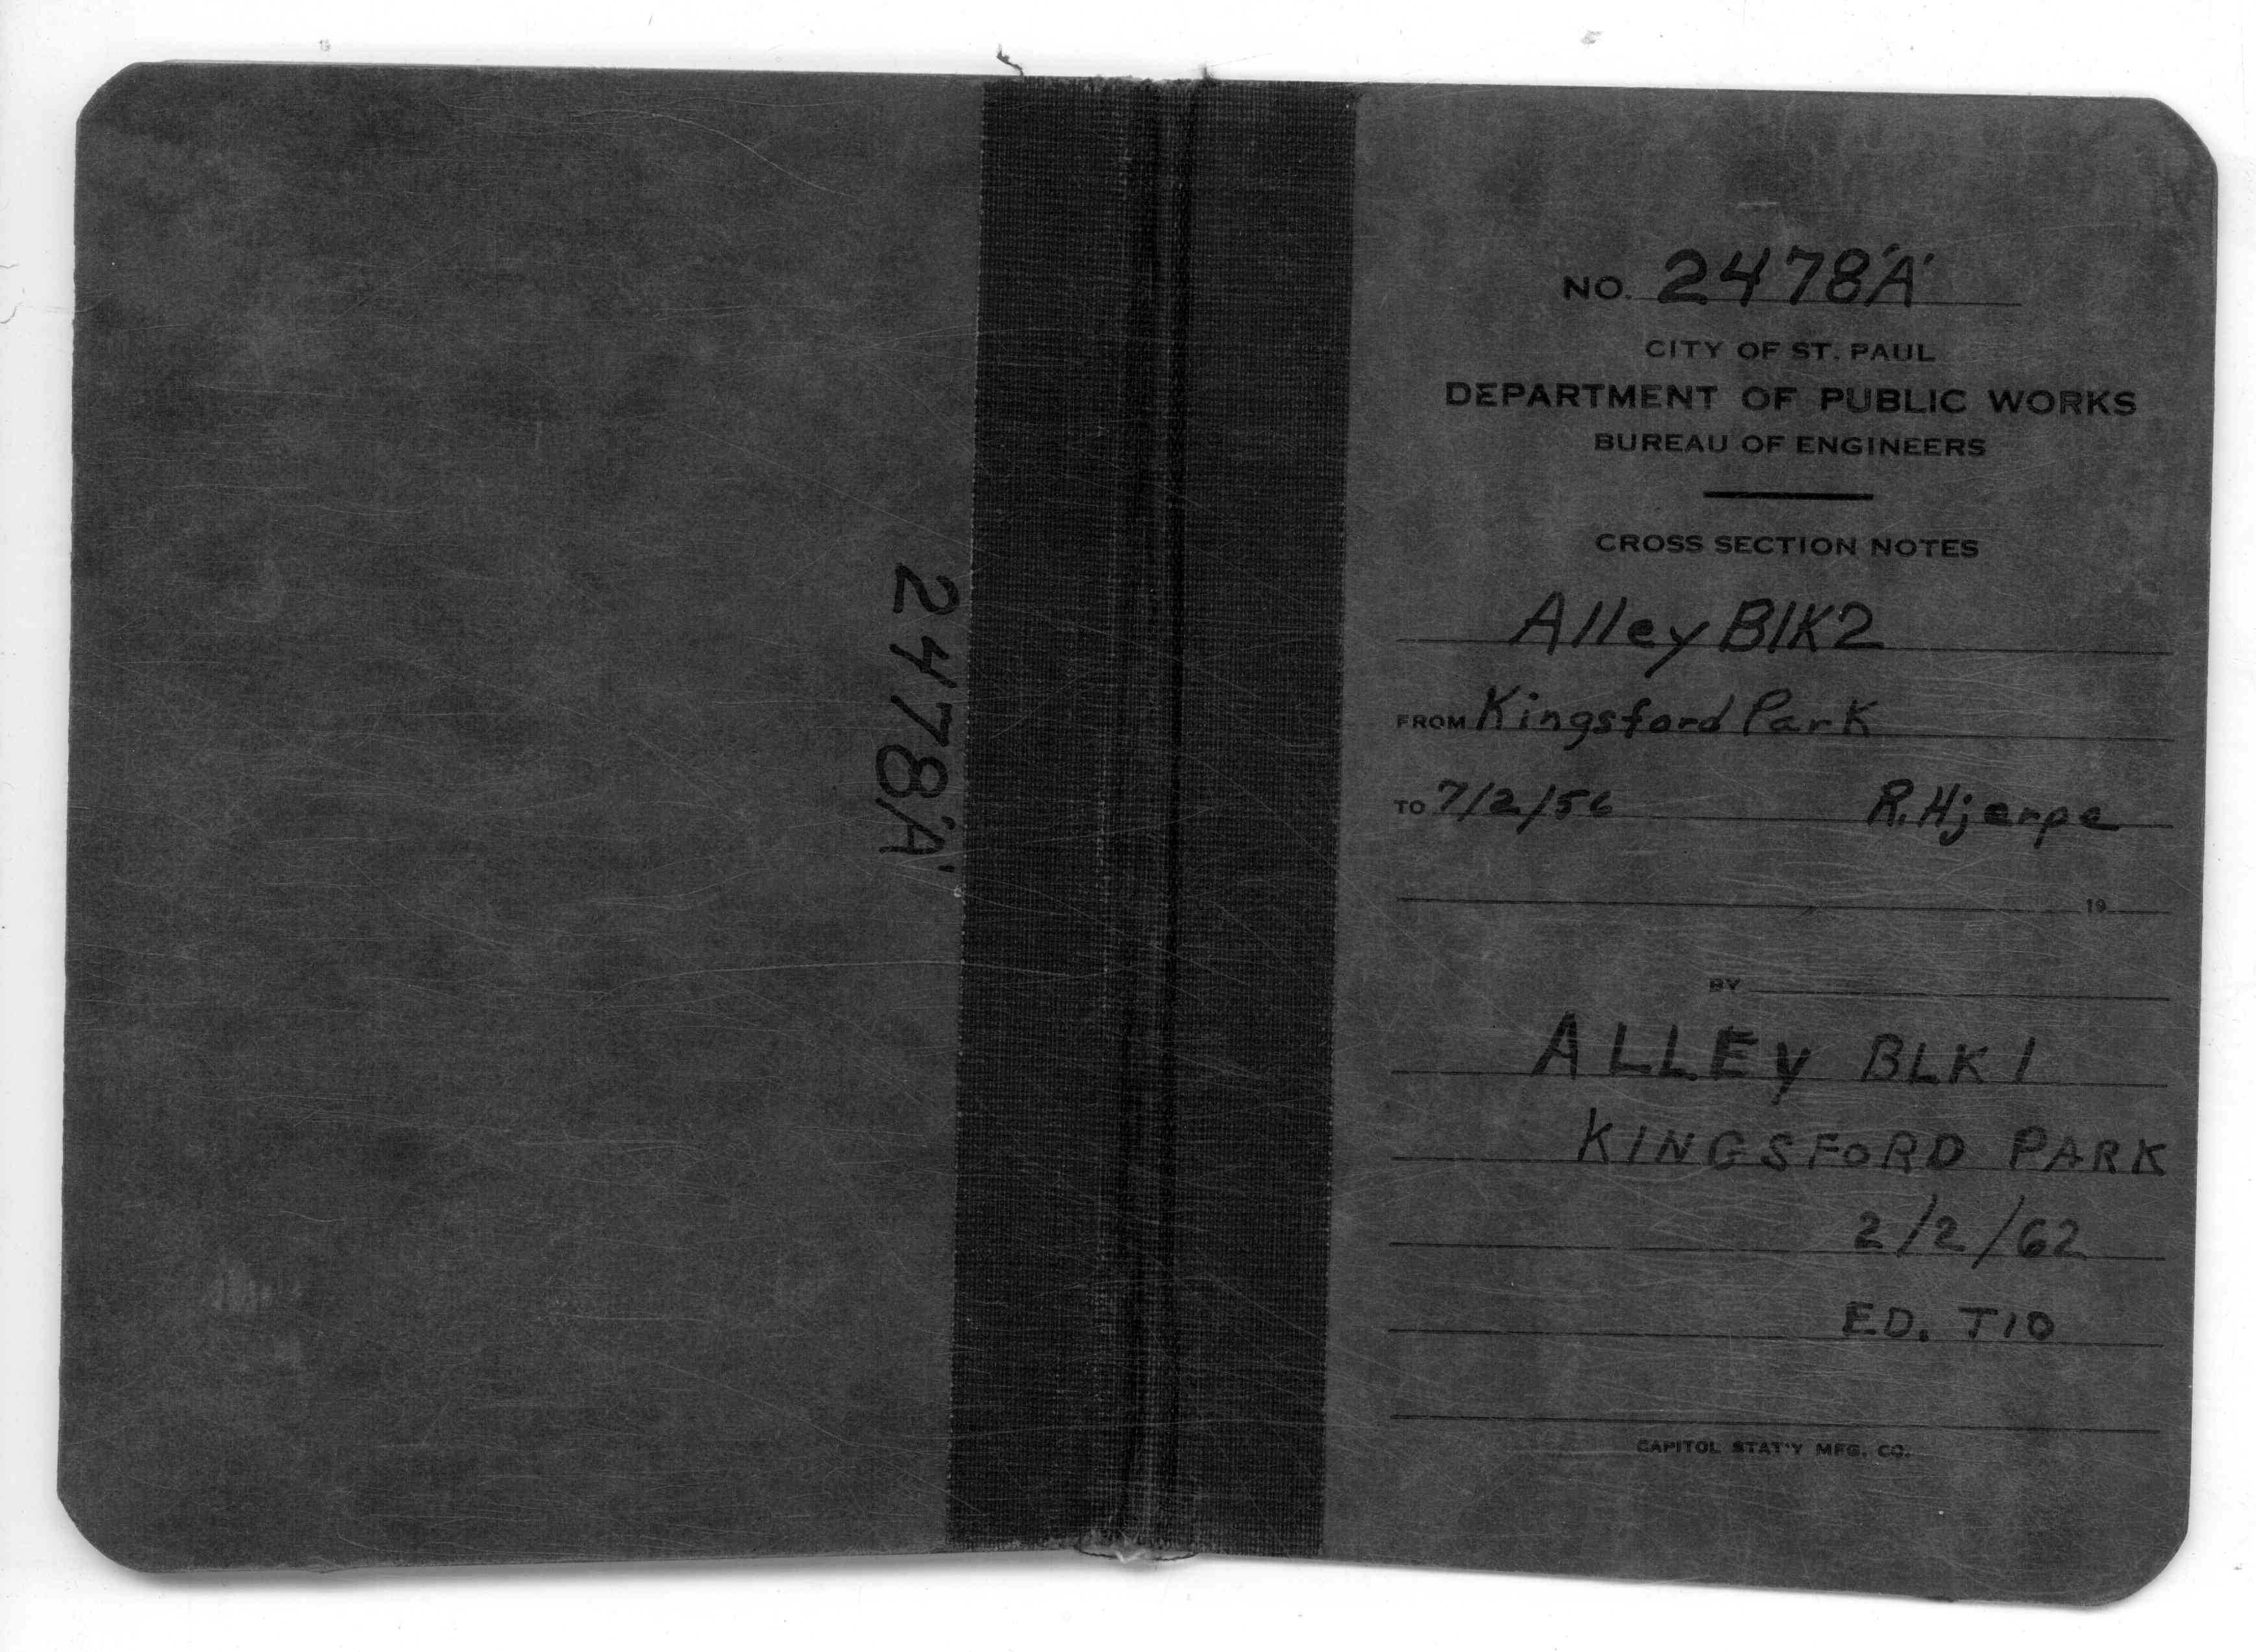 2478'A'
NO. 2478'A'
CITY OF ST. PAUL
DEPARTMENT OF PUBLIC WORKS
BUREAU OF ENGINEERS
CROSS SECTION NOTES
Alley Blk2
FROM Kingsford Park
TO 7/2/56 R. Hjerpe
19
BY
ALLEY BLK 1
KINGSFORD PARK
2/2/62
ED. TIO
CAPITOL STAT'Y MFG. CO.